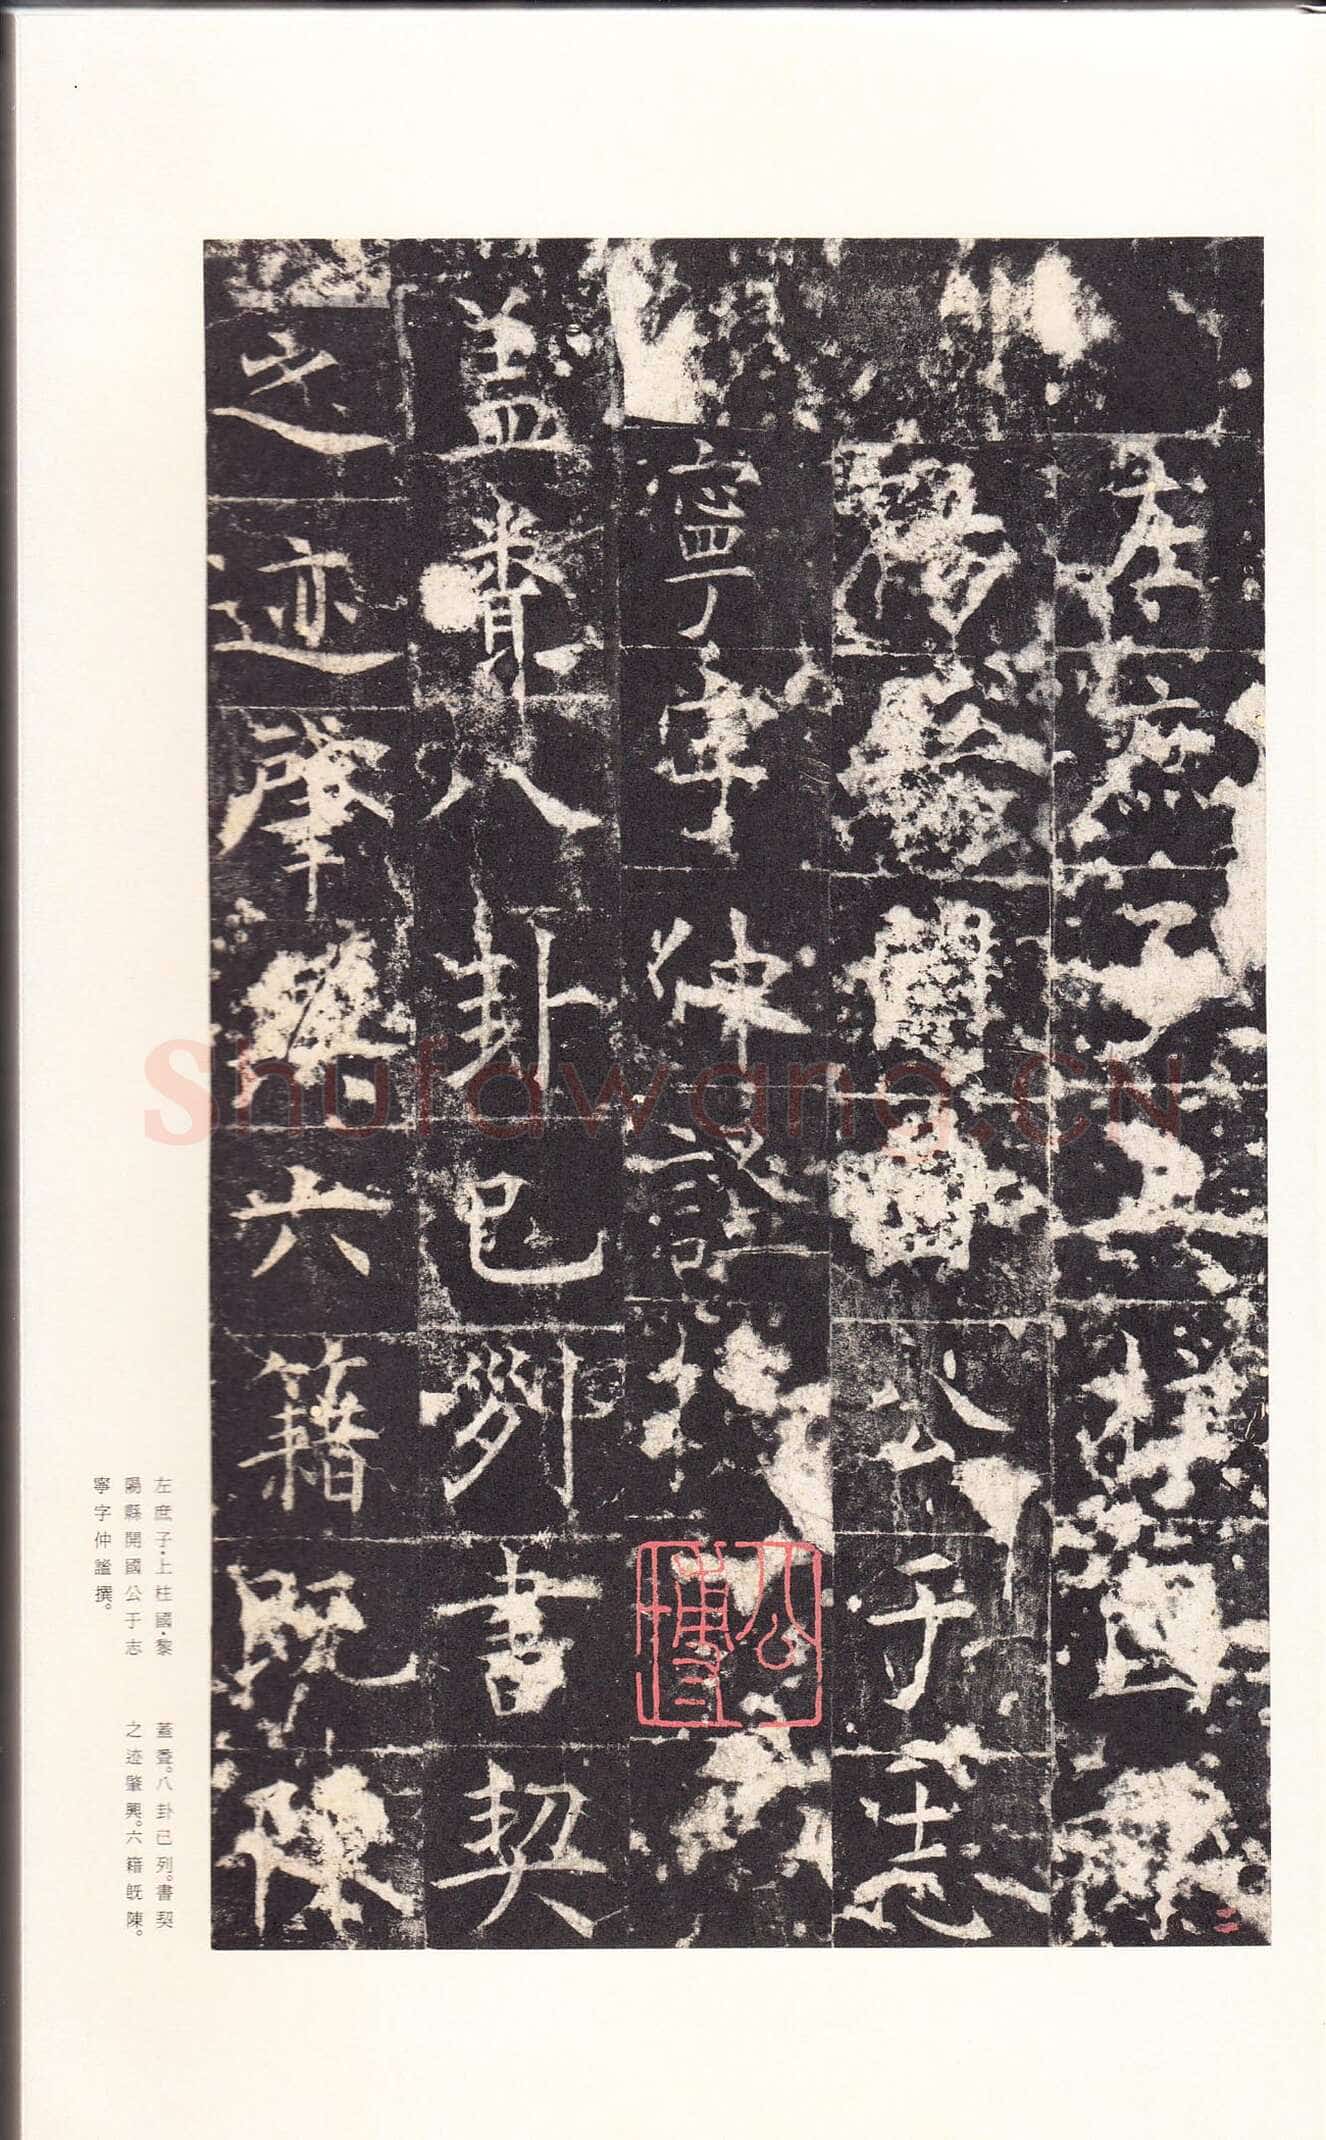 左庶子上柱國黎
陽縣開國公于志
寧字仲謐撰
蓋聞八卦已列書契
之迹肇興六籍既陳
左庶子·上柱國·黎
陽縣開國公于志
寧字仲謐撰。
蓋聞。八卦已列。書契
之迹肇興。六籍既陳。
二
Shufawang.CN